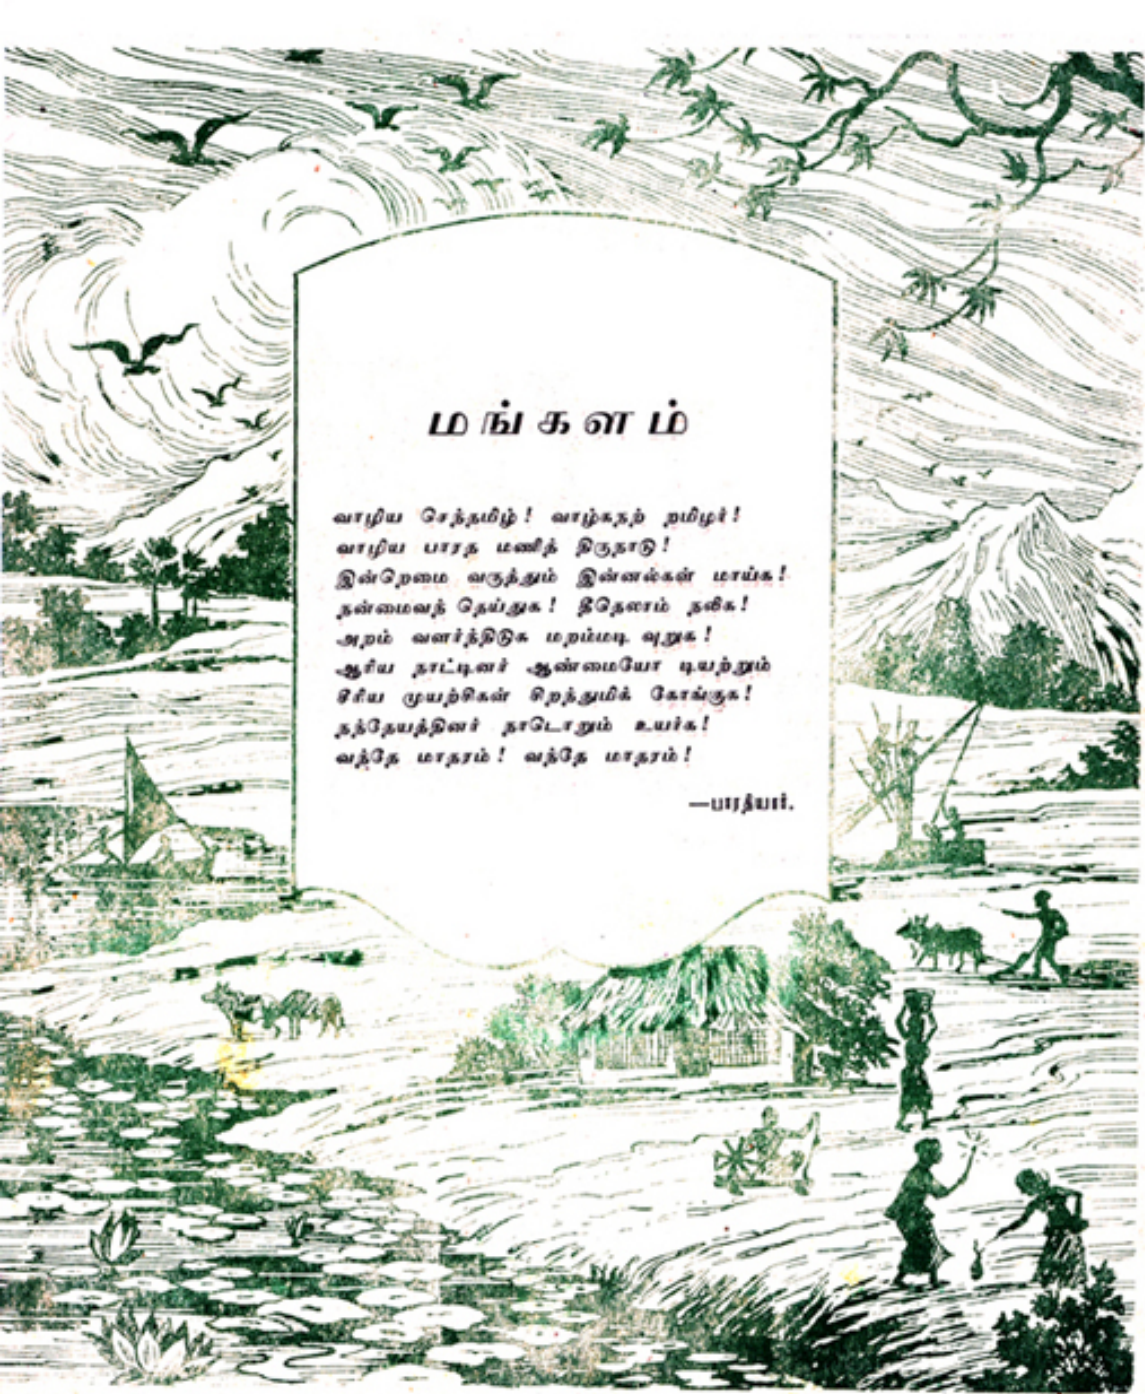 மங்களம்
வாழிய செந்தமிழ்! வாழ்கநற் றமிழர்!
வாழிய பாரத மணித் திருநாடு!
இன்றெமை வருத்தும் இன்னல்கள் மாய்க!
நன்மைவந் தெய்துக! தீதெலாம் நலிக!
அறம் வளர்ந்திடுக மறம்மடி வுறுக!
ஆரிய நாட்டினர் ஆண்மையோ டியற்றும்
சீரிய முயற்சிகள் சிறந்துமிக் கோங்குக!
நந்தேயத்தினர் நாடொறும் உயர்க!
வந்தே மாதரம்! வந்தே மாதரம்!
—பாரதியார்.